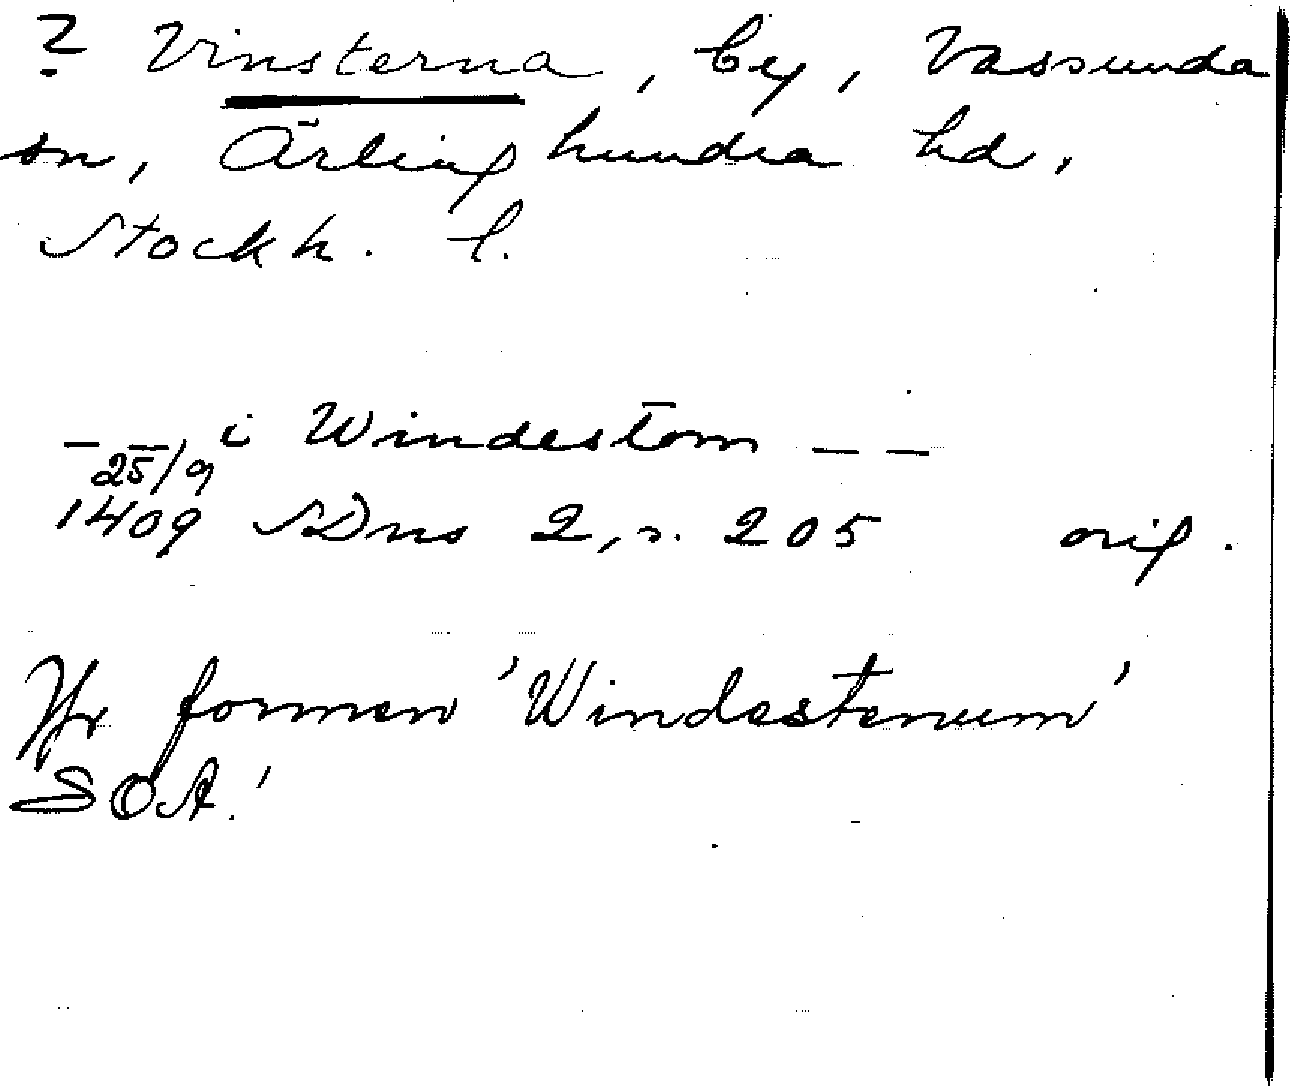 ? Vinsterna, by, Vassunda
sn, Ärlinghundra hd,
Stockh. l.
— — i Windestom — —
25/9
1409 SDns 2, s. 205 orig.
Jfr formen 'Windestenum'
SOA.'